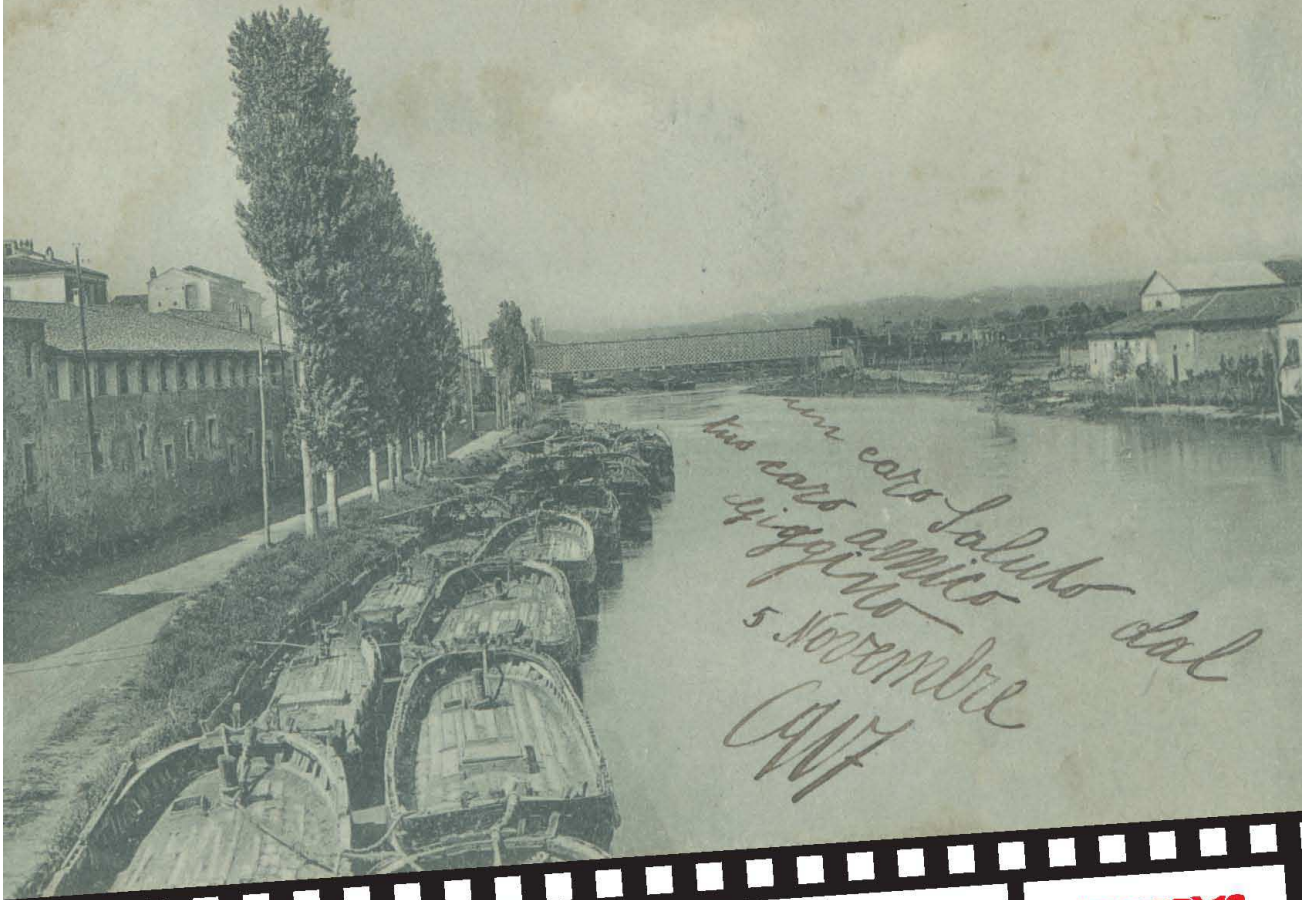 un caro Saluto dal
tuo caro amico
Giggino
5 Novembre
1917